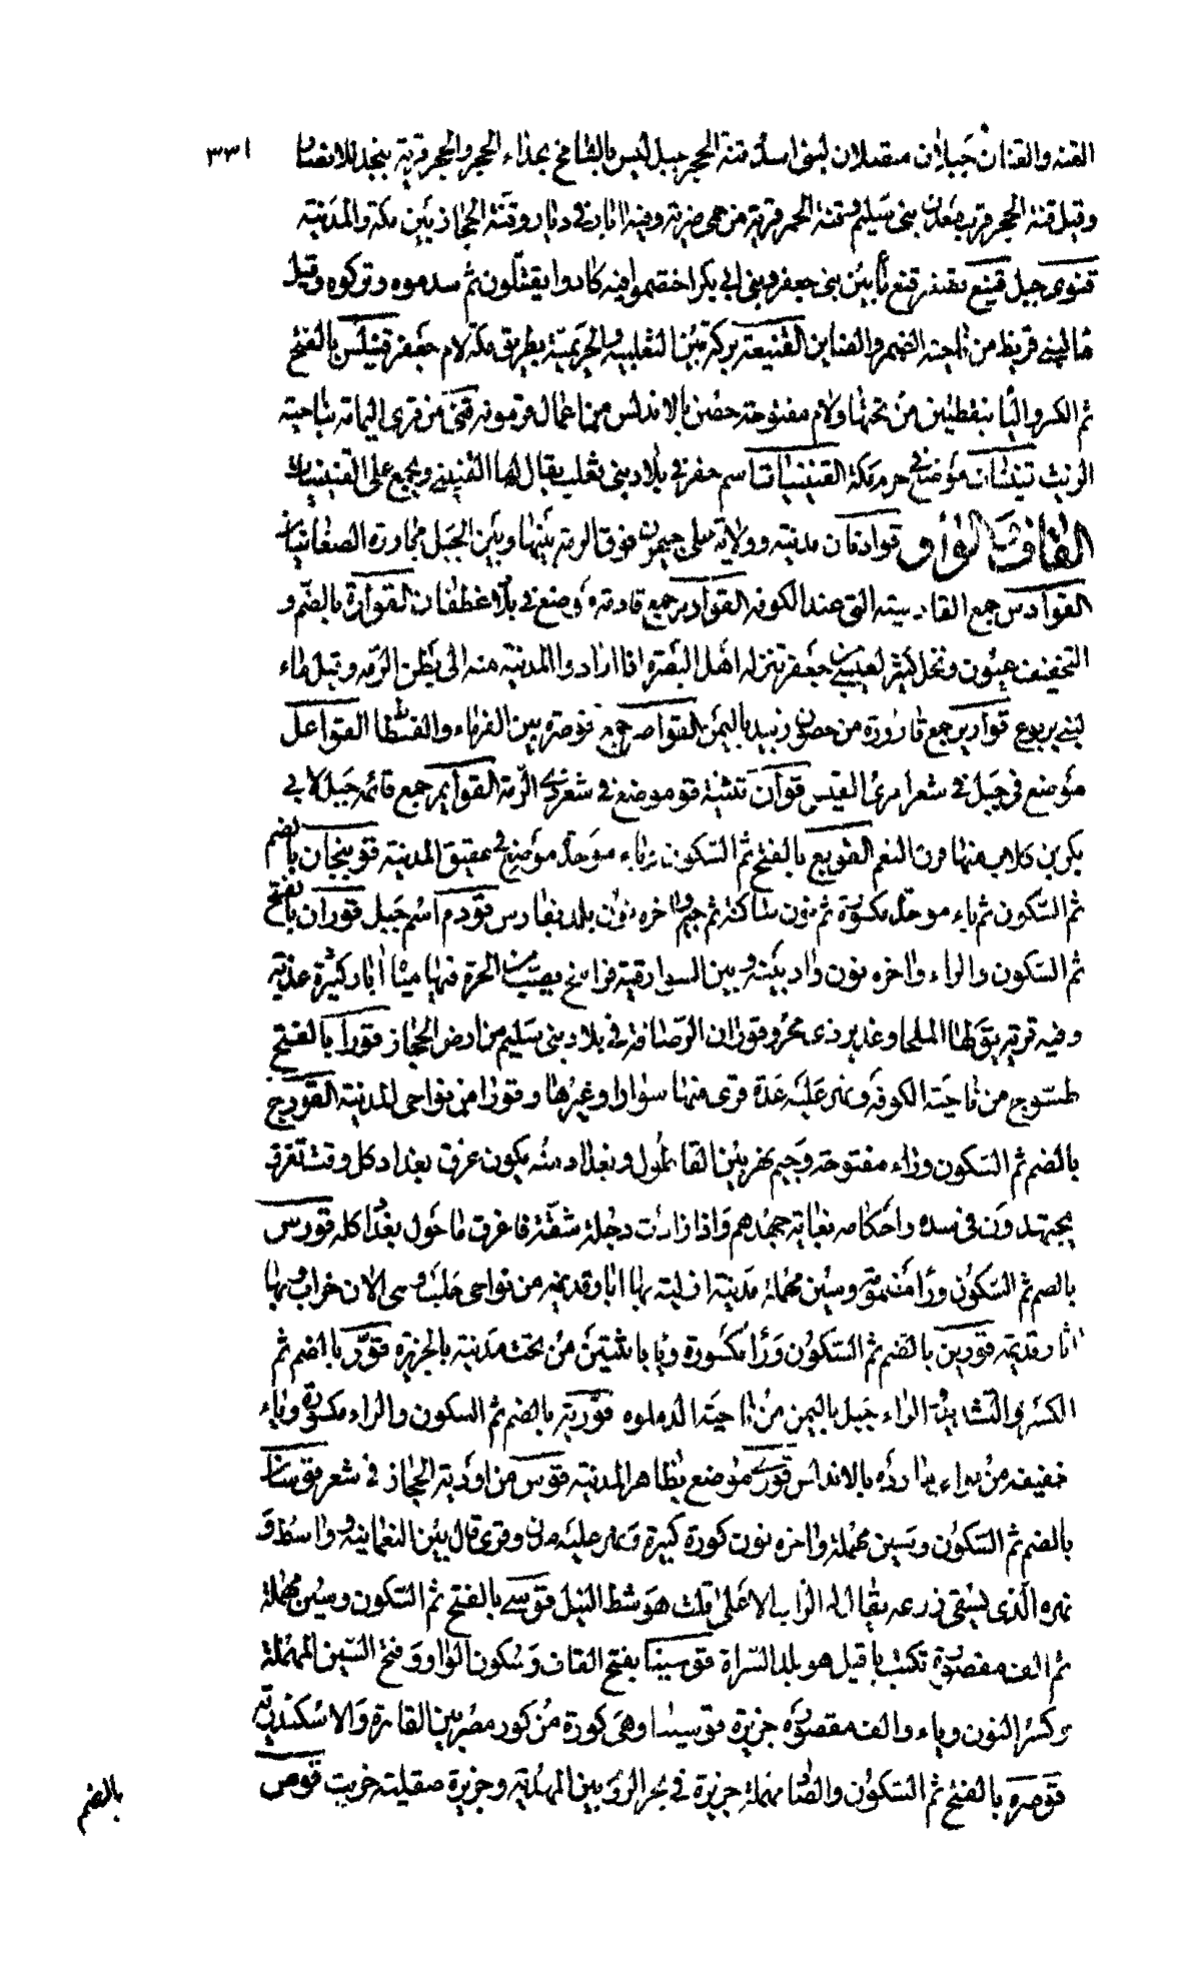 القنه والقنان جبلان متصلان لبنى اسد قنة الحجر جبل ليس بالشامخ بحذاء الحجر والحجر قرية بنجد للانصار ٣٣١
وقيل قنة الحجر قرب معدن بنى سليم وقنة الحمر قريبة من حمى ضرية وقنة اياد فى ديار وقنة الحجاز بين مكة والمدينة
قنوى جبل قنيع بقنفر قنع ماء بين بنى جعفر وبنى ابى بكر اختصموا فيه كادوا يقتتلون ثم سدموه وتركوه وقيل
ماء لبنى قريظ من ناحية الضمر والضاين القنيعة بركة بين الثعلبيه والخزيمية بطريق مكة لام جعفر قنيلش بالفتح
ثم الكسر والياء بنقطتين من تحتها ولام مفتوحة حصن بالاندلس من اعمال قرمونه قنى من قرى اليمامة بناحية
الريث قينات موضع فى حرم مكة القنينيات اسم حفر فى بلاد بنى تغلب يقال لها القنينى ويجمع على القنينيات
القاف والواو قوادفان مدينة وولاية على جيحون فوق الترمذ بينها وبين الجبل مجاورة الصغانيان
القوادس جمع القادسية التى عند الكوفه القوادير جمع قادرة موضع فى بلاد غطفان القوارة بالضم و
التخفيف عيون ونخل كثير لعيسى بن جعفر تنزله اهل البصره اذا ارادوا المدينة منه الى بطن الرمه وقيل ماء
لبنى يربوع قوارير جمع قارورة من حصون زبيد باليمن القواصر جمع قوصرة بين الفرماء والفسطاط القواعل
موضع فى جبل فى شعر امرئ القيس قوان تثنية قو موضع فى شعر ذى الرمة القوايم جمع قائمة جبل لابى
بكر بن كلاب منها قرن النعم القوبع بالفتح ثم السكون وباء موحدة موضع فى عقيق المدينة قوبنجان بالضم
ثم السكون ثم باء موحدة مكسورة ثم نون ساكنة ثم جيم واخره نون بلد بفارس قودم اسم جبل قوران بالفتح
ثم السكون والراء واخره نون واد بينه وبين السوارقية فراسخ يصب من الحرة فيها مياه ابار كثيرة عذبة
وفيه قرية يقال لها الملحا وغدير ذى مجر وقوران الرصافة فى بلاد بنى سليم من ارض الحجاز قورا بالفتح
طسوج من ناحية الكوفه ونهر عليه عدة قرى منها سوارا وغيرها وقورا من نواحى المدينة القورج
بالضم ثم السكون وراء مفتوحة وجيم نهر بين القاطول وبغداد منه يكون غرق بغداد كل وقت تغرق
يجتهدون فى سده واحكامه بغاية جهدهم واذا زادت دجلة شقته فاغرق ما حول بغداد كله قورس
بالضم ثم السكون وراء مضمومة وسين مهملة مدينة ازلية بها اثار قديمة من نواحى حلب وهى الان خراب وبها
اثار قديمة قورين بالضم ثم السكون وراء مكسورة وياء باثنتين من تحت مدينة بالجزيرة قور بالضم ثم
الكسر والتشديد الراء جبل باليمن من ناحية الدملوه قورية بالضم ثم السكون والراء مكسورة وياء
خفيفه من نواحى ماردة بالاندلس قورى موضع بظاهر المدينة قوس من اودية الحجاز فى شعر قوسان
بالضم ثم السكون وسين مهملة واخره نون كورة كبيرة ونهر عليه مدن وقرى قال بين النعمانيه وواسط و
نهره الذى يسقى زرعه يقال له الزاب الاعلى قلت هو شط النيل قوسى بالفتح ثم السكون وسين مهملة
ثم الف مقصورة تكتب ياء قيل هو بلد السراة قوسينا بفتح القاف وسكون الواو وفتح السين المهملة
وكسر النون وياء والف مقصورة جزيرة قوسينا وهى كورة من كور مصر بين القاهرة والاسكندرية
قوصره بالفتح ثم السكون والصاد مهملة جزيرة فى بحر الروم بين المهدية وجزيرة صقلية خربت قوص
بالضم